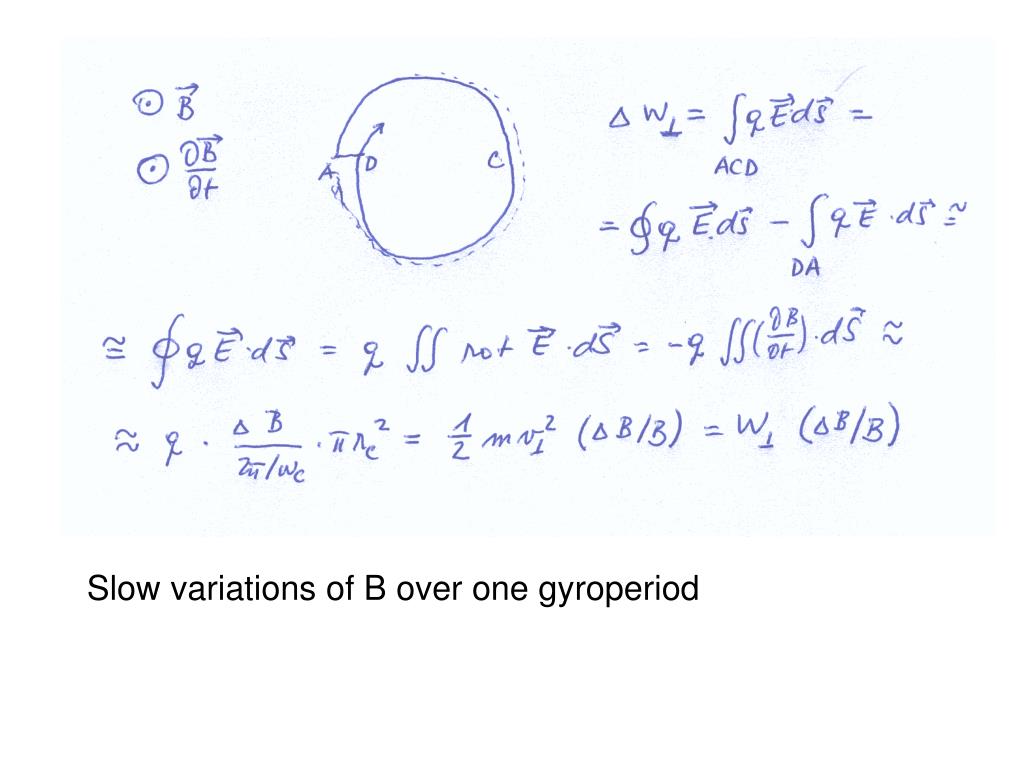 ⊙ B⃗
⊙ ∂B⃗/∂t
A D C
Δ W⊥ = ∫ q E⃗ ds⃗ =
ACD
= ∮ q E⃗ . ds⃗ − ∫ q E⃗ · ds⃗ ≅
DA
≅ ∮ q E⃗ · ds⃗ = q ∬ rot E⃗ · dS⃗ = −q ∬ (∂B⃗/∂t) · dS⃗ ≈
≈ q · ΔB/(2π/ωc) · π rc² = 1/2 m v⊥² (ΔB/B) = W⊥ (ΔB/B)
Slow variations of B over one gyroperiod